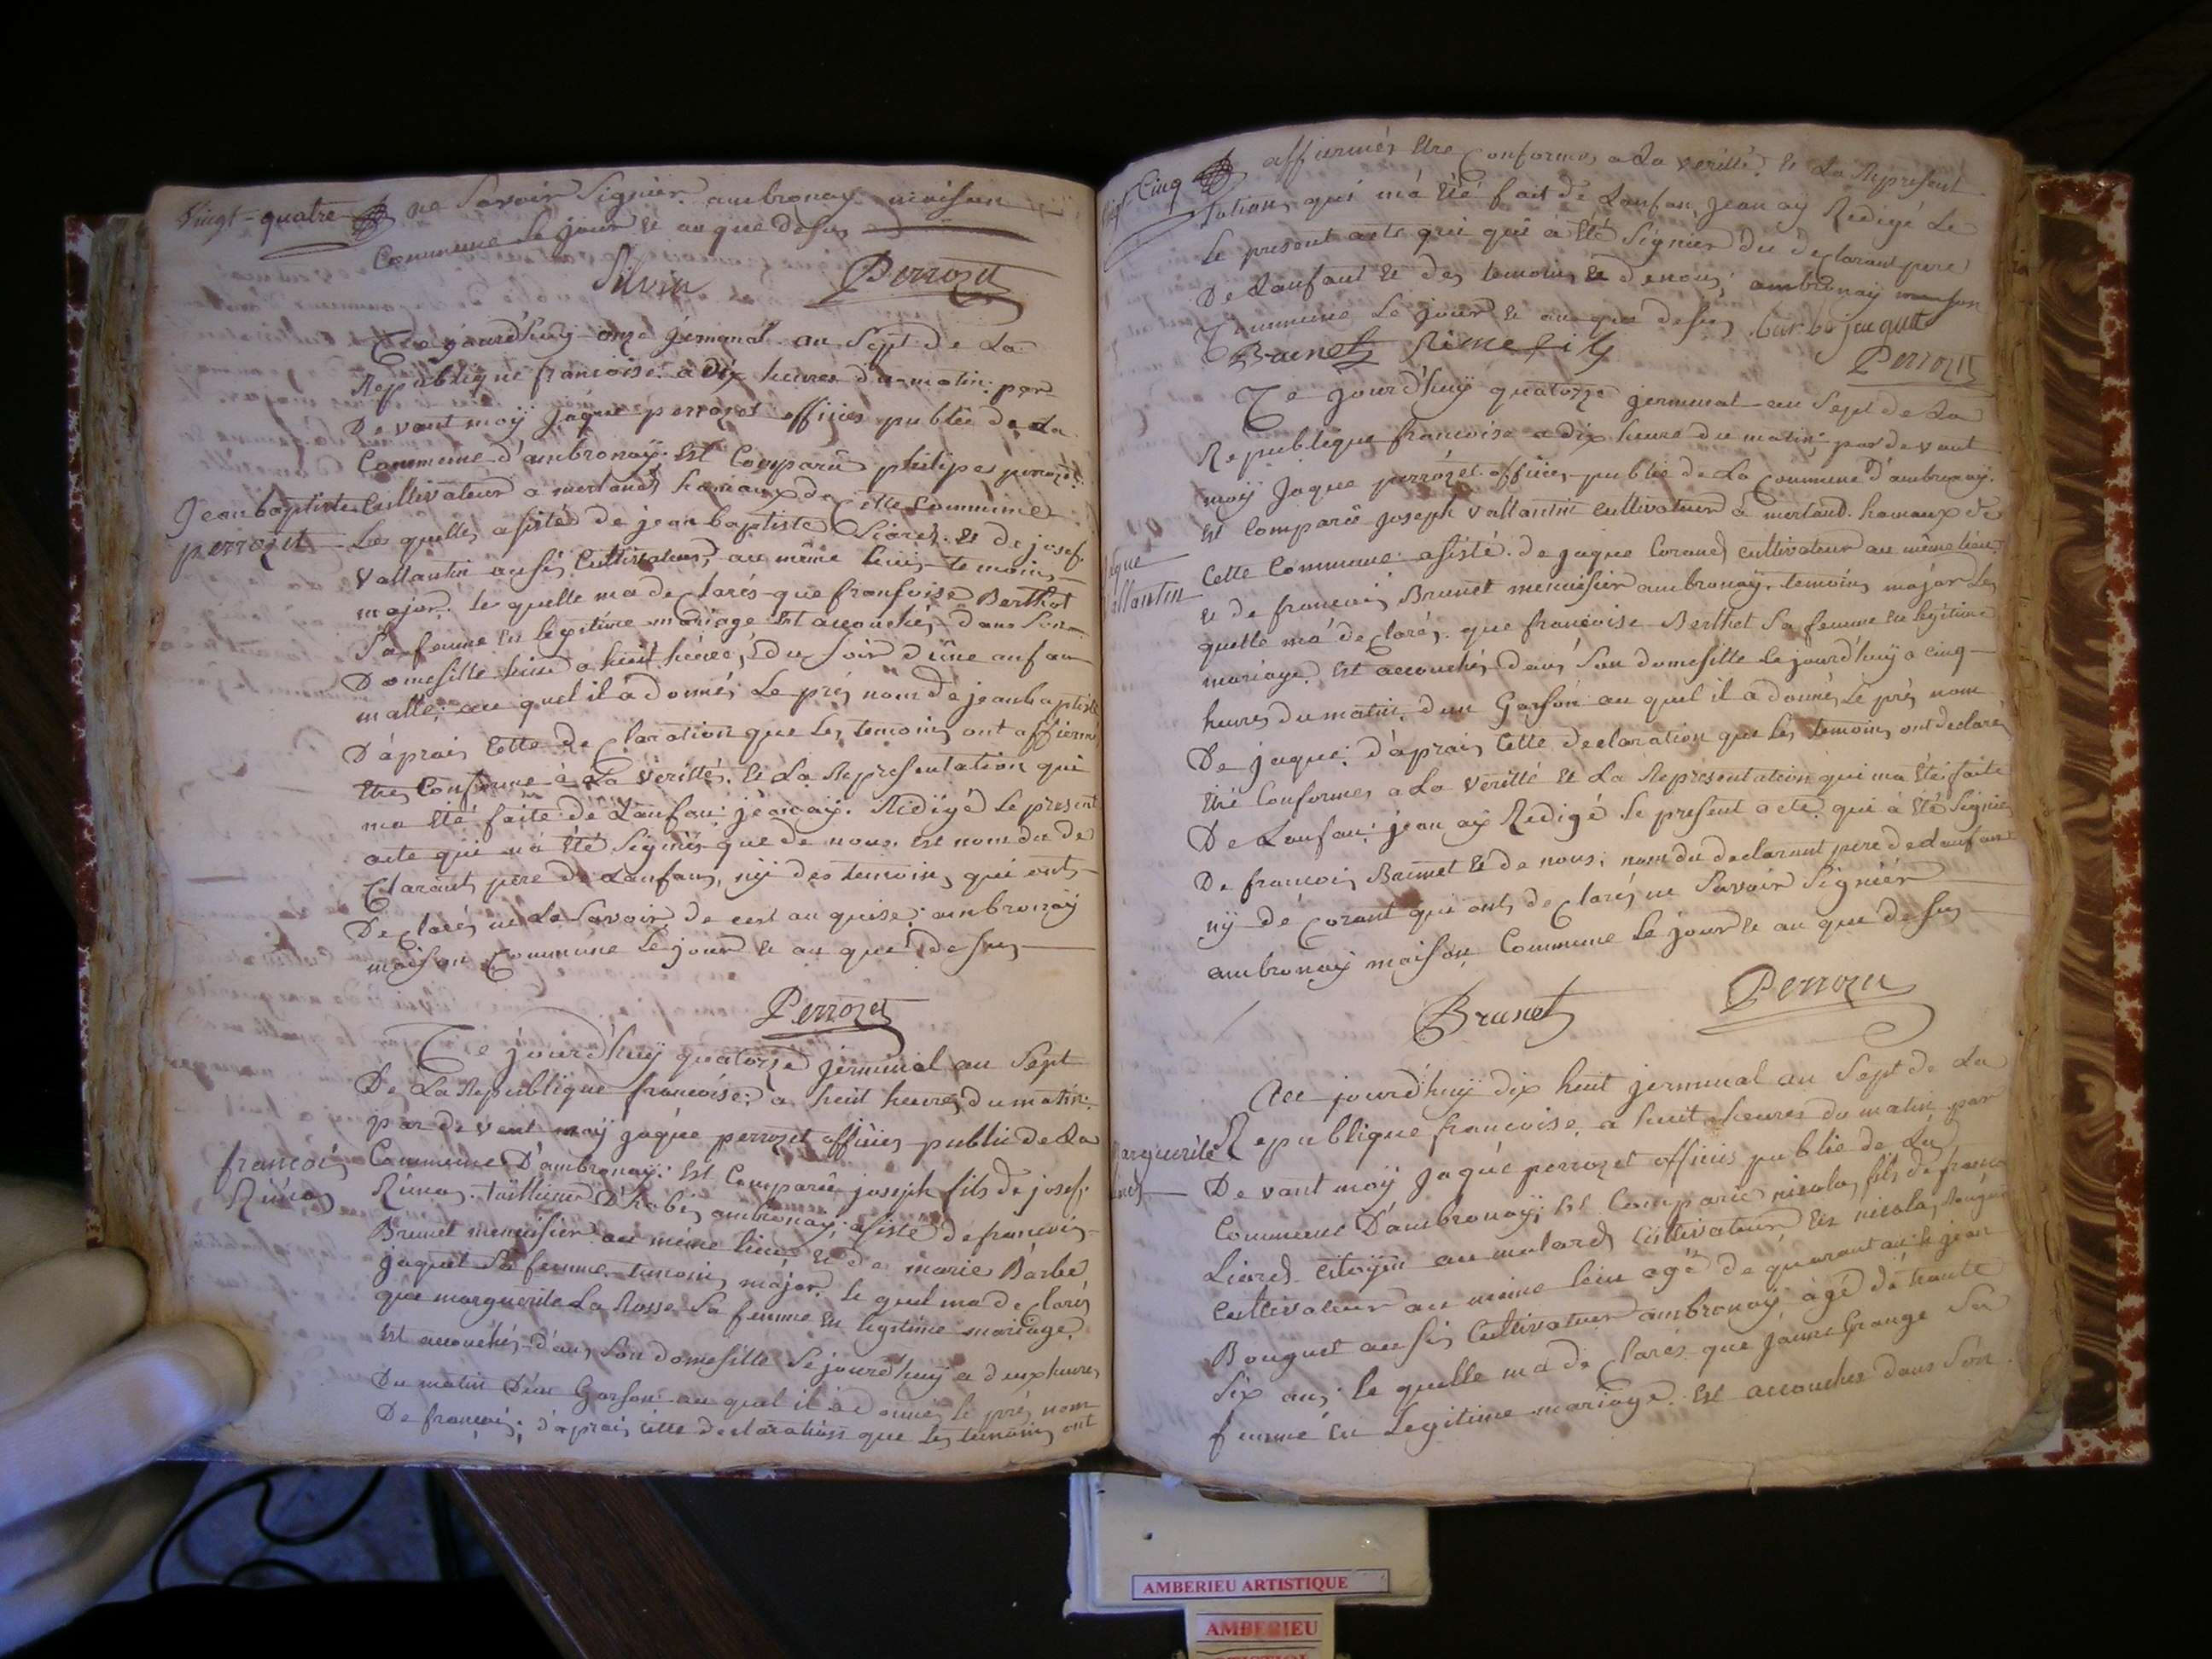 Vingt-quatre ne Savoir Signier. ambronay maison
Commune le jour et an que desus
Silvin Perrozet
Ce jourd'huy onze jerminal an Sept de La
Republique francoise. a dix heures du matin. par
Devant moÿ Jaque perrozet officies publie de La
Commune d'ambronaÿ. Est Comparû philipe perrozet
Jean baptiste Cultivateur a merland hamaux de Cette Commune
perrozet Les quelles asistés de jean baptiste Liard. et de josef
Vallantin ausi Cultivateurs, au même lieu, temoins
major. le quelle ma declarés que fransoise Berthet
Sa femme en legitime mariage est acouchés dans Son
Domesille hier a huit heures, du soir d'une anfan
malle; au quel il a donnés Le prés nom de jeanbaptiste
D'aprais Cette Declaration que Les temoins ont affierme
Etre Conforme à La verittés. et La Representation qui
ma été faite de Lanfan jeanaÿ. Redigé Le present
acte qui n'a été Signiés que de nous. Est nom du de
Clarant pere de Lanfans, nÿ des temoins qui onts
Declarés ne Le Savoir de cest an quise; ambronaÿ
maison Commune le jour et an que desus
Perrozet
Ce jourd'huÿ quatorze jerminal an Sept
De La Republique francoise. a huit heures du matin.
par devent moÿ jaque perrozet officies publie de La
francois Commune D'ambronaÿ. Est Comparû joseph fils de josef.
Rime Rime. taillieur D'habis ambronaÿ; asisté de francois
Brunet menuisier au même lieu, et de marie Barbe
jaquet Sa femme temoins major. le quel ma declarés
que marguerite La Rosse Sa femme en legitime mariage.
est acouchés dans Son domesille Se jourd'huÿ a deux heures
Du matin D'un Garson au quel il a donnés le prés nom
De francois; d'aprais cette declaration que les temoins ont
Vingt-Cinq affiermés Etre Conformes a La verittés. et La Represent
tation, qui m'a été fait de Lanfan, jean aÿ Redigé Le
Le present acte qui qui a été Signier du declarant pere
De Lanfant et des temoins et de nous; ambronaÿ maison
Commune Le jour et an que desus barbe jaquet
Brunet Rime fils Perrozet
Ce jourd'huÿ quatorze jerminal an Sept de La
Republique francoise a dix heure du matin; par devant
moÿ Jaque perrozet officies publie de La Commune d'ambronaÿ.
est Comparû joseph vallantin cultivateur à merland. hamaux de
Cette Commune asisté. de jaque Corand cultivateur au même lieu
et de francois Brunet menuisier ambronaÿ. temoins major Les
allantin
quelle ma declarés. que francoise Berthet Sa femme en legitime
mariage Est acouchés dans Son domesille Le jourd'huÿ a cinq
heures du matin, dun Garson au quel il a donnés Le prés nom
De jaque; d'aprais Cette declaration que Les temoins ont declarés
Etre Conformes a La verittés et La Representation qui ma été faite
De Lanfan; jean aÿ Redigé Le present acte qui à été Signie
De francois Brunet et de nous; nom du declarant pere de Lanfant
nÿ de Corant qui onts declarés ne Savoir Signiér
ambronaÿ maison Commune Le jour et an que desus
Brunet Perrozet
Cee jourd'huÿ dix huit jerminal an Sept de La
arguerite Republique francoise, à huit heures du matin par
Devant moÿ Jaque perrozet officies publie de La
Commune D'ambronaÿ; est Comparû nicolas fils de franco
Liard citoÿin au molard Cultivateur
Cultivateur au même lieu agé de quarant an et jean
Bouguet ausi Cultivateur ambronaÿ, agé de trante
Six ans; le quelle ma declarés que janne Grange Sa
femme en Legitime mariage. est acouches dans Son
AMBERIEU ARTISTIQUE
AMBERIEU